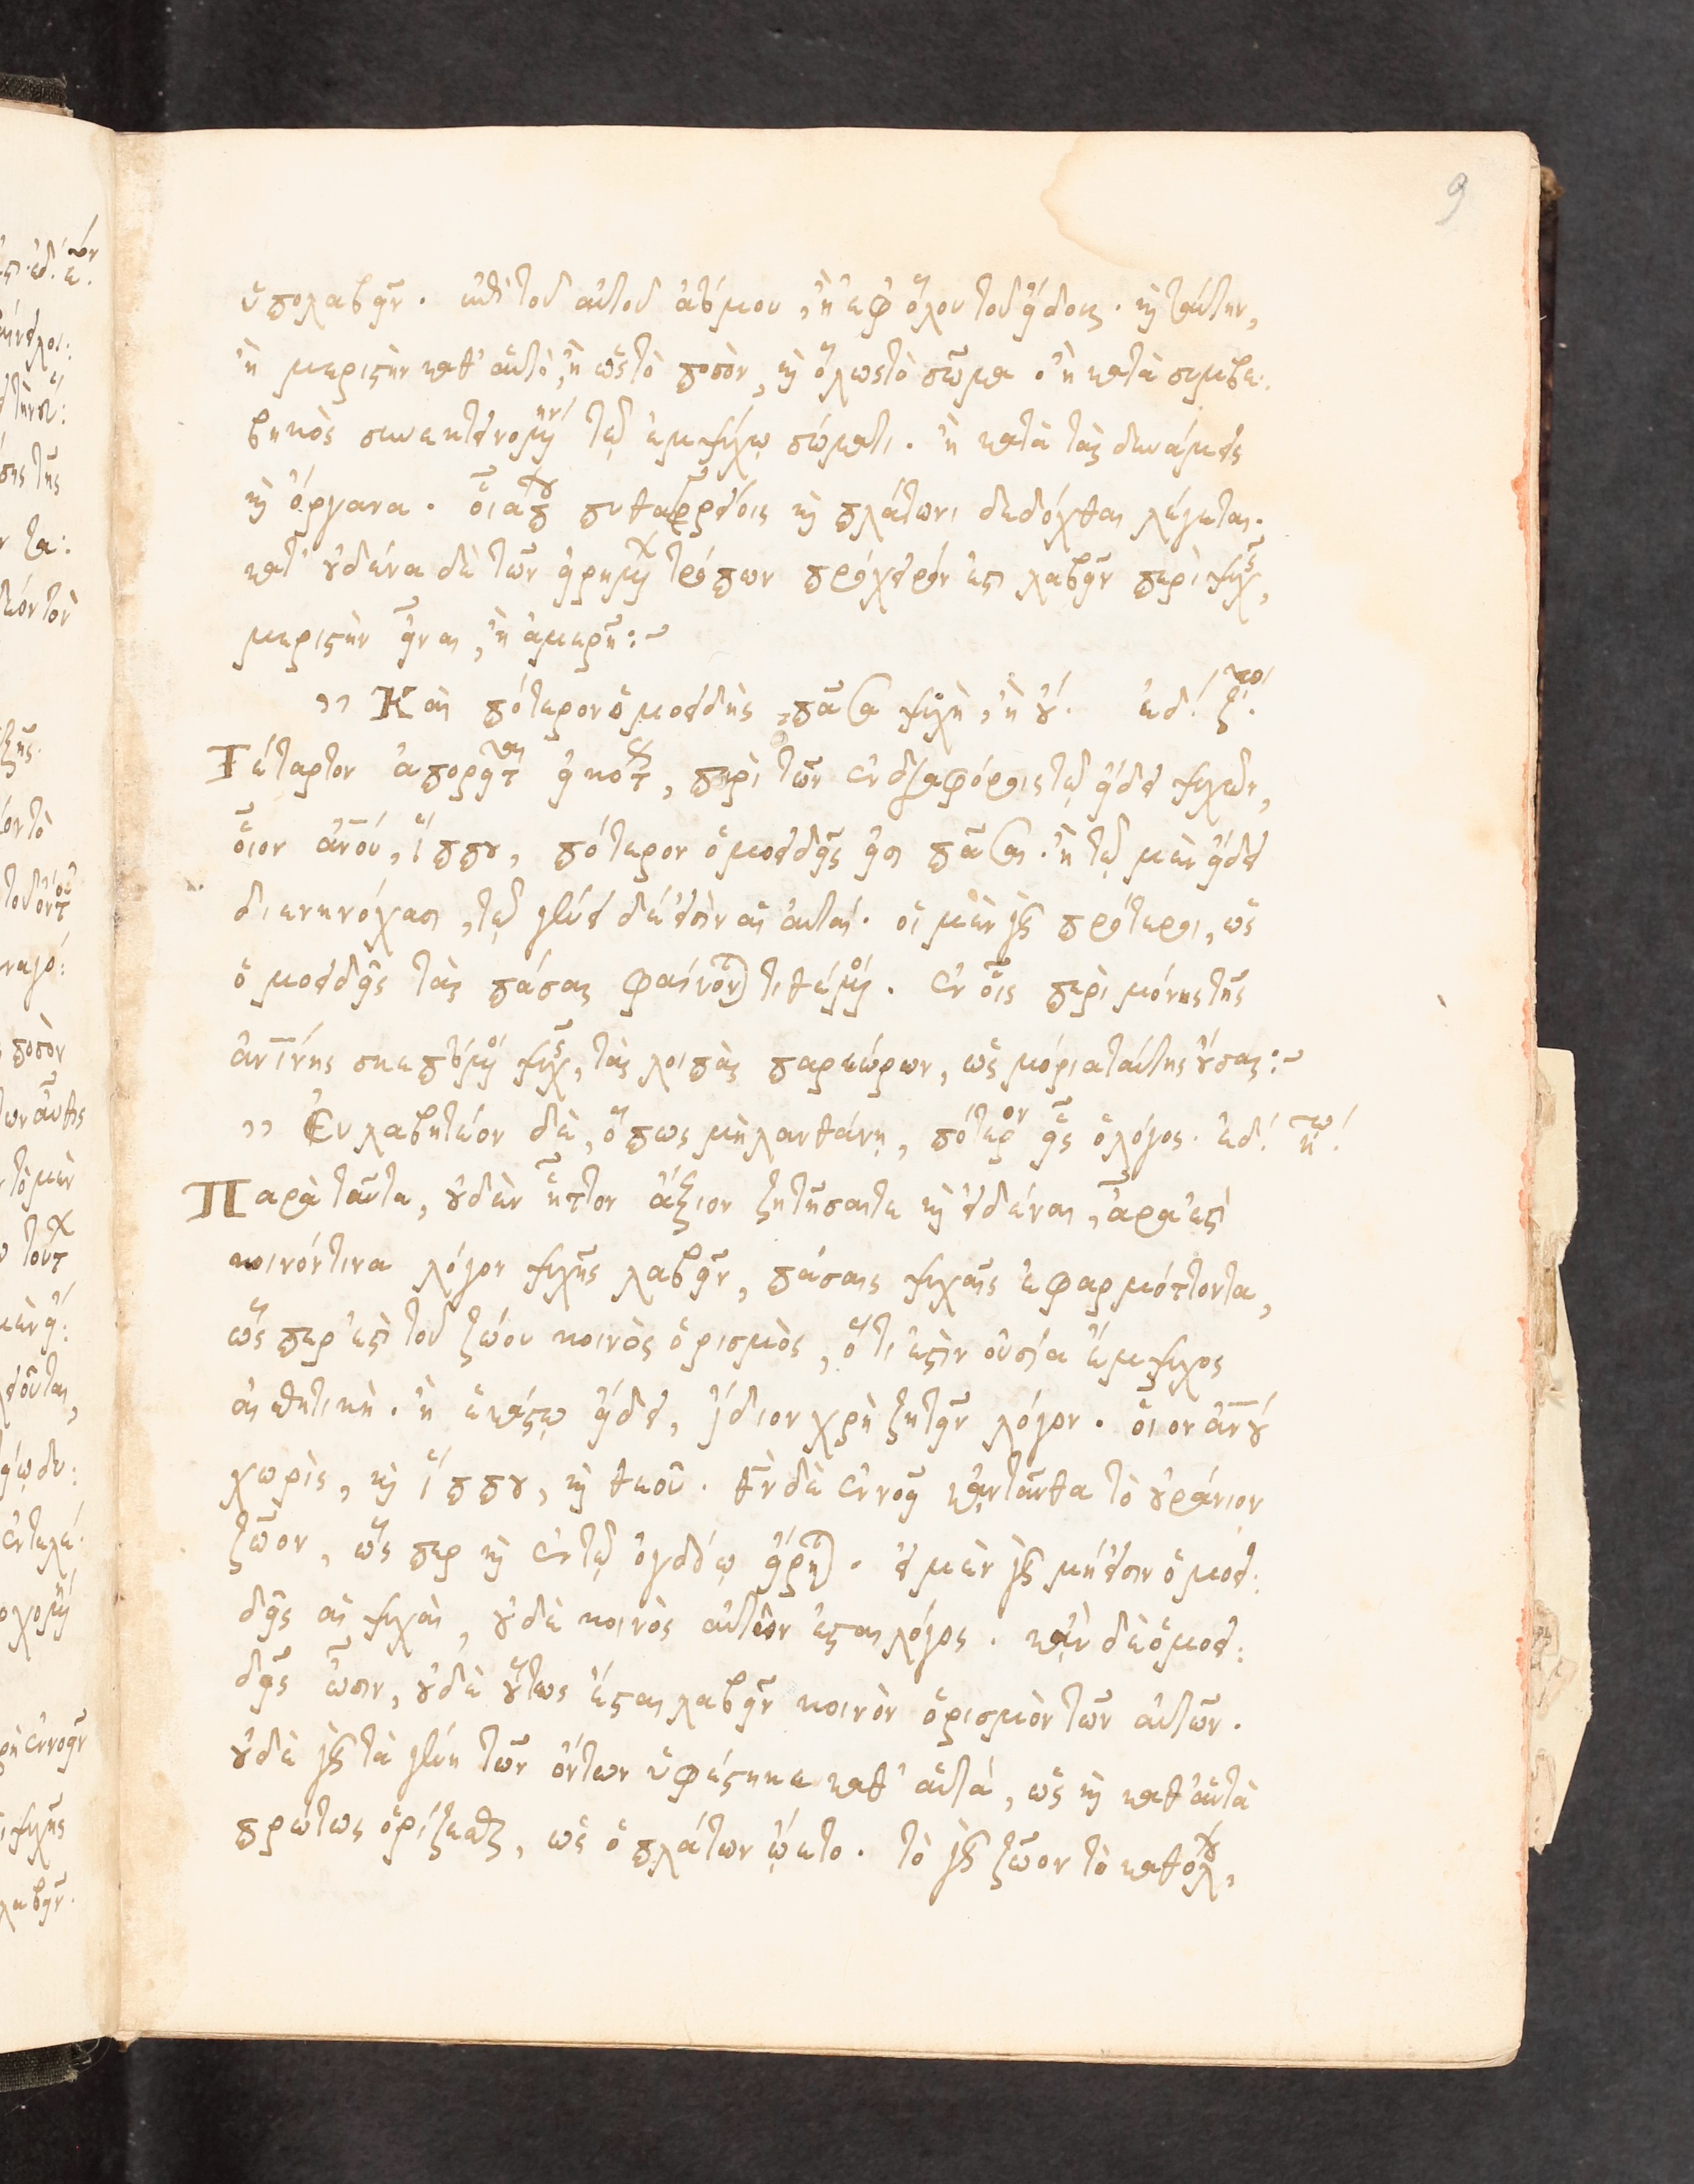 9
ὑπολαβεῖν. ἐπὶ τοῦ αὐτοῦ ἀτόμου, ἢ ἐφ' ὅλου τοῦ εἴδους. καὶ ταύτην,
ἢ μεριστὴν καθ' αὑτὸ, ἢ ὡς τὸ ποσὸν, καὶ ὅλως τὸ σῶμα. ἢ κατὰ συμβε:
βηκὸς συνεκτεινομένην τῷ ἐμψύχῳ σώματι. ἢ κατὰ τὰς δυνάμεις
καὶ ὄργανα. πυθαγορείοις καὶ πλάτωνι δεδόχθαι λέγεται.
κατ' οὐδένα δὲ τῶν εἰρημένων τρόπων πρόχειρόν ἐστι λαβεῖν περὶ ψυχῆς,
μεριστὴν εἶναι, ἢ ἀμερῆ:~
" Καὶ πότερον ὁμοειδὴς πᾶσα ψυχὴ, ἢ οὔ. ἐδ. ζ.
Τέταρτον ἀπορεῖται εἰκότως, περὶ τῶν ἐν διαφόροις τῷ εἴδει ψυχῶν,
οἷον ἀνου, ἵππου, πότερον ὁμοειδεῖς εἰσι πᾶσαι. ἢ τῷ μὲν εἴδει
διενηνόχασι, τῷ γένει δέ εἰσιν αἱ αὐταί. οἱ μὲν γὰρ πρότεροι, ὡς
ὁμοειδεῖς τὰς πάσας φαίνονται τιθέμενοι. ἐν οἷς περὶ μόνης τῆς
ἀνίνης σκεπτόμενοι ψυχῆς, τὰς λοιπὰς παρεώρων, ὡς μόρια ταύτης οὔσας:~
" Εὐλαβητέον δὲ, ὅπως μὴ λανθάνῃ, πότερον εἷς ὁ λόγος. ἐδ. η.
Παρὰ ταῦτα, οὐδὲν ἧττον ἄξιον ζητῆσαί τε καὶ εἰδέναι, ἆρα ἐστὶ
κοινόν τινα λόγον ψυχῆς λαβεῖν, πάσαις ψυχαῖς ἐφαρμόττοντα,
ὥσπερ ἐστὶ τοῦ ζώου κοινὸς ὁρισμὸς, ὅτι ἐστὶν οὐσία ἔμψυχος
αἰσθητική. ἢ ἑκάστῳ εἴδει, ἴδιον χρὴ ζητεῖν λόγον. οἷον ἀνου
χωρὶς, καὶ ἵππου, καὶ θεοῦ. θν δὲ ἐννοεῖ κἀνταῦθα τὸ οὐράνιον
ζῶον, ὥσπερ καὶ ἐν τῷ ὀγδόῳ εἴρηται. εἰ μὲν γὰρ μή εἰσιν ὁμοει:
δεῖς αἱ ψυχαὶ, οὐδὲ κοινὸς αὐτῶν ἔσται λόγος. κἂν δὲ ὁμοει:
δεῖς ὦσιν, οὐδὲ οὕτως ἔσται λαβεῖν κοινὸν ὁρισμὸν τῶν αὐτῶν.
οὐδὲ γὰρ τὰ γένη τῶν ὄντων ὑφέστηκε καθ' αὑτά, ὡς καὶ καθ' αὑτὰ
πρώτως ὁρίζεσθαι, ὡς ὁ πλάτων ᾤετο. τὸ γὰρ ζῶον τὸ καθόλου,